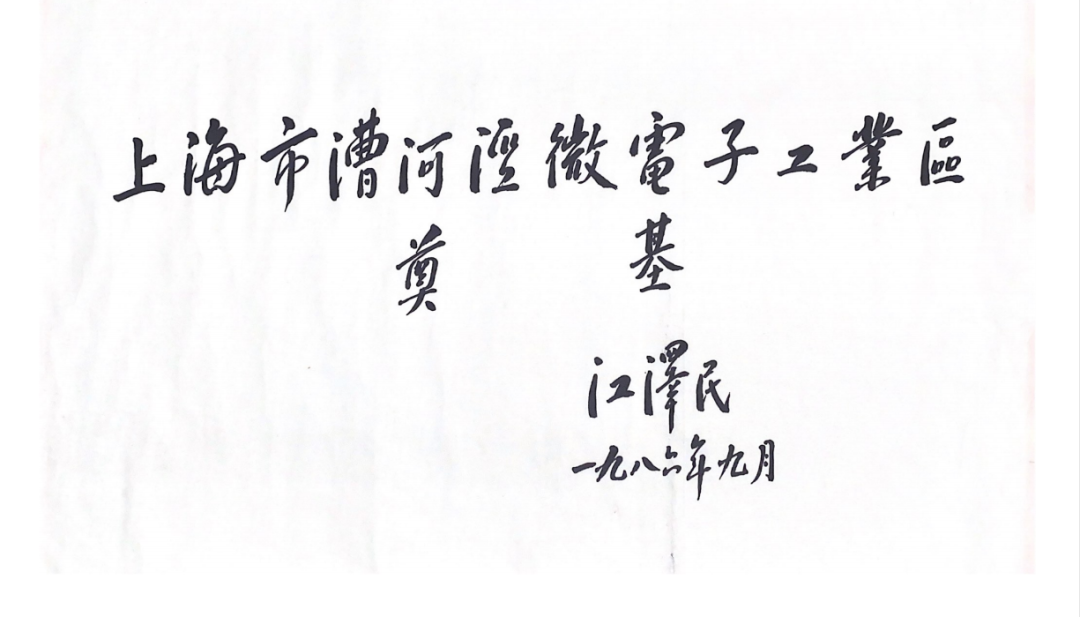 上海市漕河泾微電子工業區
奠基
江澤民
一九八六年九月